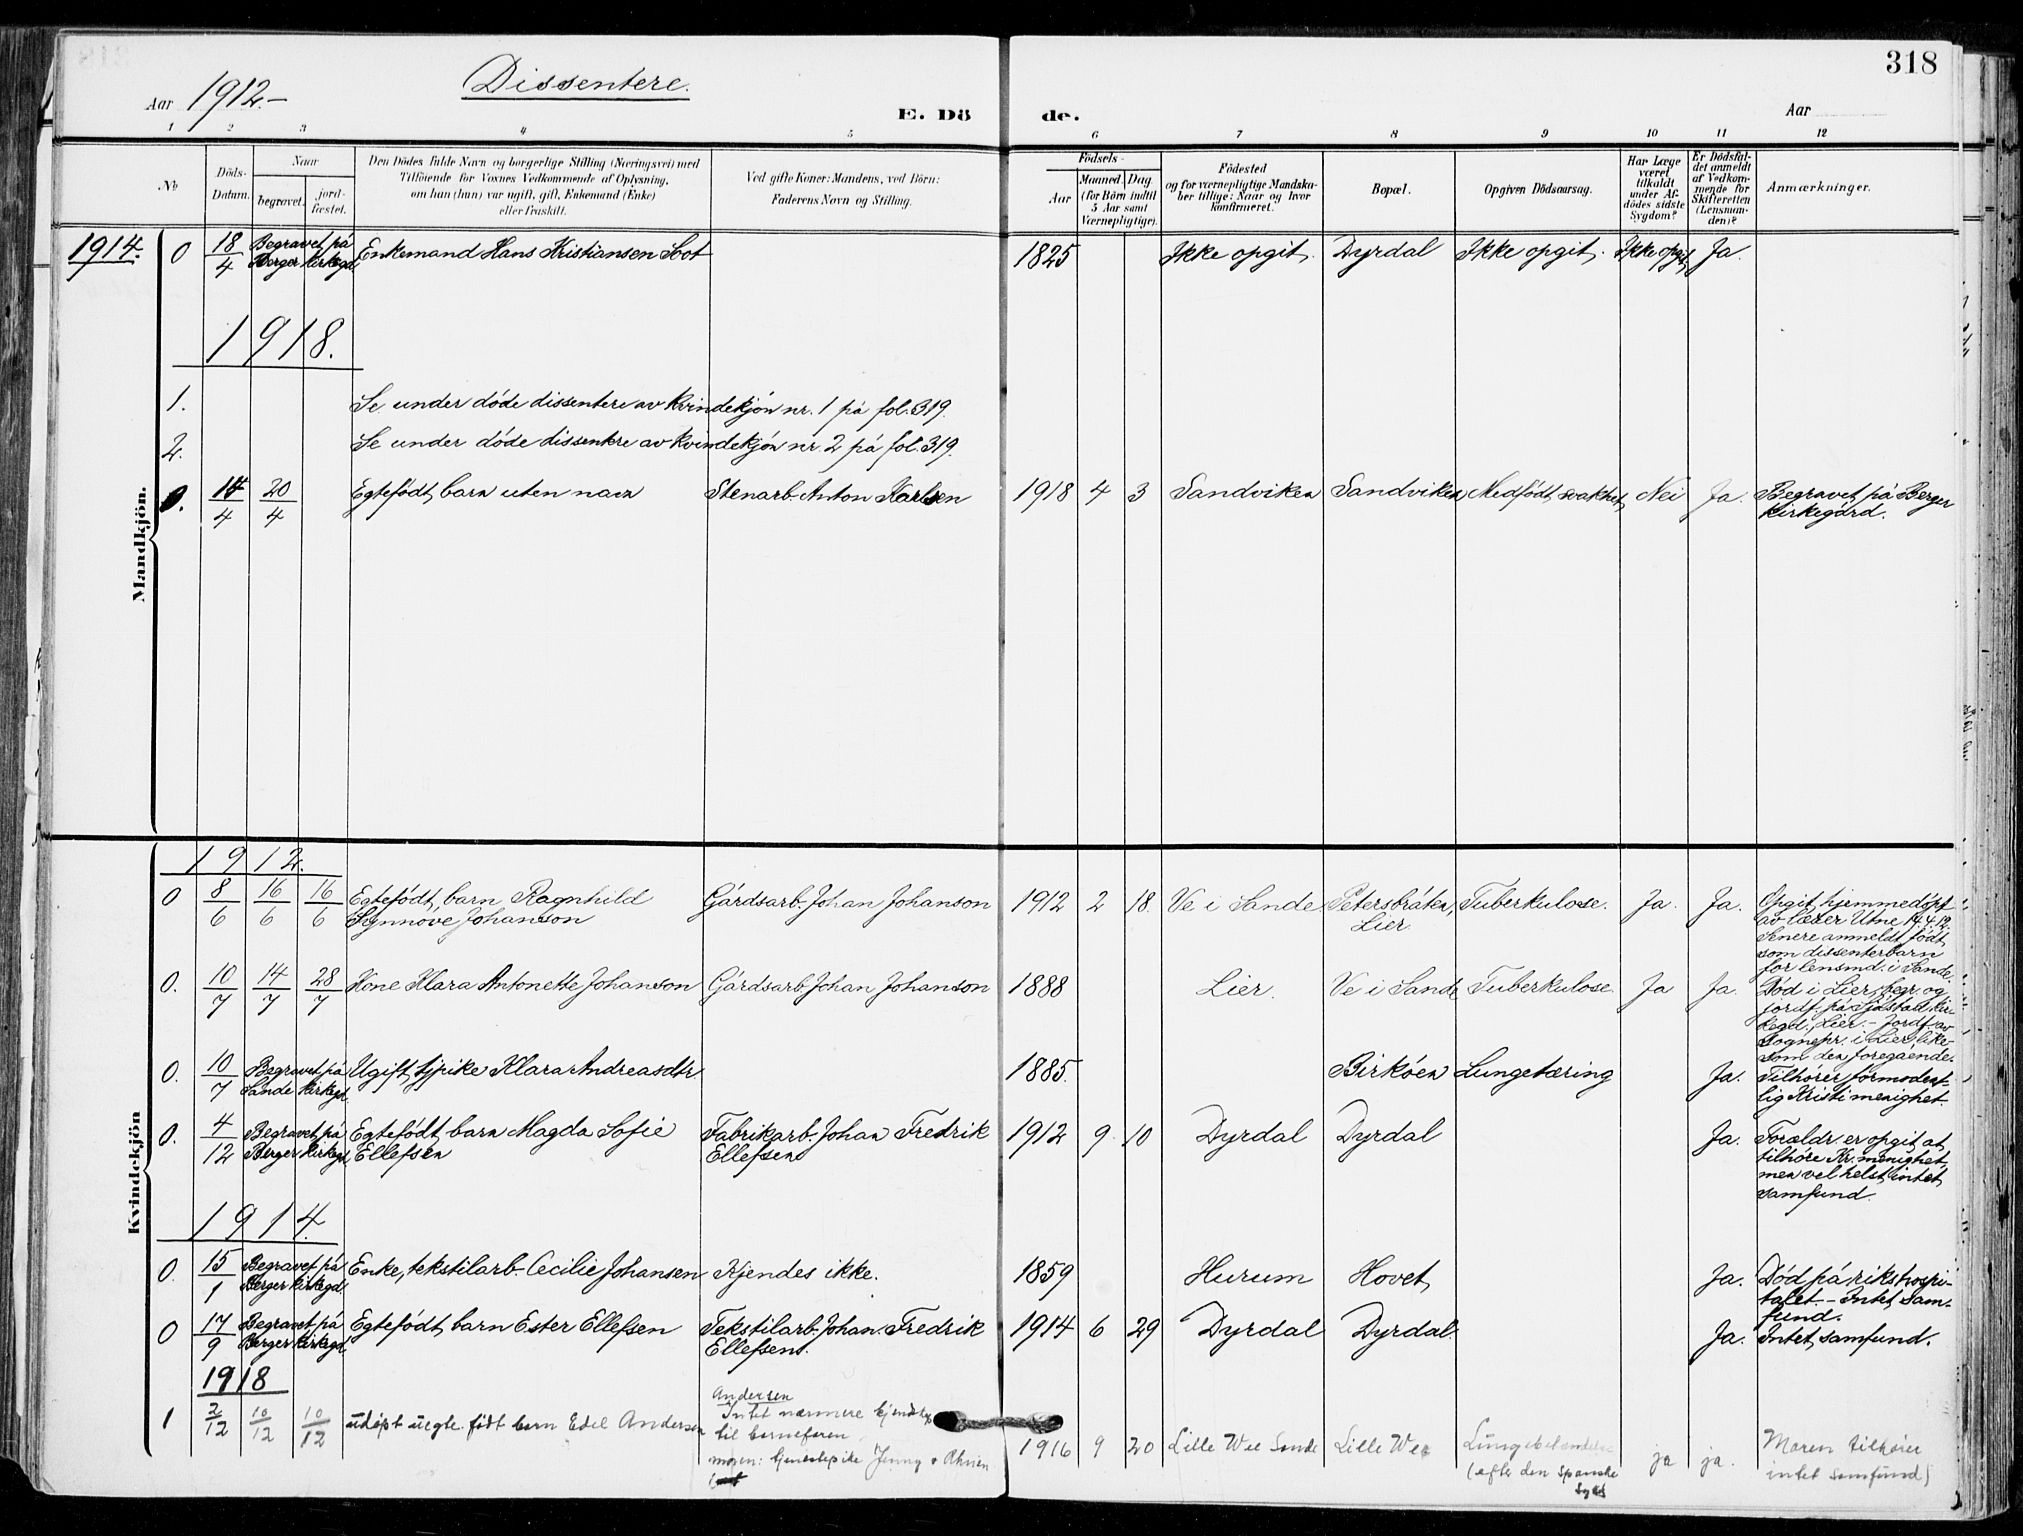 318
Aar 1912.-
Dissentere.
E. Döde.
Aar
1 2 3 4 5 6 7 8 9 10 11 12
No
Döds-Datum.
Naar
begravet.
jord-fæstet.
Den Dödes fulde Navn og borgerlige Stilling (Næringsvei) med
Tilföiende for Voxnes Vedkommende af Oplysning,
om han (hun) var ugift, gift, Enkemand (Enke)
eller fraskilt.
Ved gifte Koner: Mandens, ved Börn:
Faderens Navn og Stilling.
Födsels-
Aar
Maaned. Dag.
(for Börn indtil
5 Aar samt
Værnepligtige).
Födested
og for værnepligtige Mandska-
ber tillige: Naar og hvor
konfirmeret.
Bopæl.
Opgiven Dödsaarsag.
Har Læge
været
tilkaldt
under Af-
dödes sidste
Sygdom?
Er Dödsfal-
det anmeldt
af Vedkom-
mende for
Skifteretten
(Lensman-
den)?
Anmærkninger.
Mandkjön.
1914. 0 18/4 Begravet på Berger kirkegd. Enkemand Hans Kristiansen Sot 1825 Ikke opgit. Dyrdal Ikke opgit. Ikke opgit. Ja.
1918.
1. Se under døde dissentere av kvindekjøn nr. 1 på fol. 319.
2. Se under døde dissentere av kvindekjøn nr. 2 på fol. 319.
0. 14/4 20/4 Egtefødt barn uten navn Stenarb. Anton Karlsen 1918 4 3 Sandviken Sandviken Medfødt svakhet, Nei Ja. Begravet på Berger
kirkegård.
Kvindekjön
1912.
0 8/6 16/6 16/6 Egtefødt barn Ragnhild
Synnøve Johanson
Gårdsarb. Johan Johanson 1912 2 18. Ve i Sande Petersbråten,
Lier.
Tuberkulose. Ja. Ja. Opgit hjemmedøpt
av lærer Utne 14.4.12.
Senere anmeldt født
som dissenterbarn
for lensmd. i Sande.
0. 10/7 14/7 28/7 Kone Klara Antonette Johanson Gårdsarb. Johan Johanson 1888 Lier. Ve i Sande Tuberkulose. Ja Ja. Død i Lier, begr. og
jordf. på Sjåstad kir-
kegd. Lier. - Jordf. av
Sognepr. i Lier like-
som den foregående.
0. 10/7 Begravet på Sande kirkegd. Ugift tjpike Klara Andreasdtr. 1885. Birkøen Lungetæring Ja. Tilhører formodent-
lig Kristi menighet.
0. 4/12 Begravet på Berger kirkegd. Egtefødt barn Magda Sofie
Ellefsen
Fabrikarb. Johan Fredrik
Ellefsens
1912 9. 10 Dyrdal Dyrdal Ja. Forældr. er opgit at
tilhøre Kr. menighet,
men vel helst intet
samfund.
1914.
0. 15/1 Begravet på Berger kirkegd. Enke, tekstilarb. Cecilie Johansen Kjendes ikke. 1859 Hurum Hovet Ja. Død på rikshospi-
talet. - Intet sam-
fund.
0 17/9 Begravet på Berger kirkegd. Egtefødt barn Ester Ellefsen Tekstilarb. Johan Fredrik
Ellefsens.
1914 6 29 Dyrdal Dyrdal. Ja. Intet samfund.
1918
1 2/12 10/12 10/12 udøpt uegte født barn Edel Andersen
Andersen
Intet nærmere kjendskap
til barnefaren
moren: tjenestepike Jenny
1916 9 20 Lille Wee Sande Lille Wee
(efter den spanske
syke
ja ja. Moren tilhører
intet samfund)